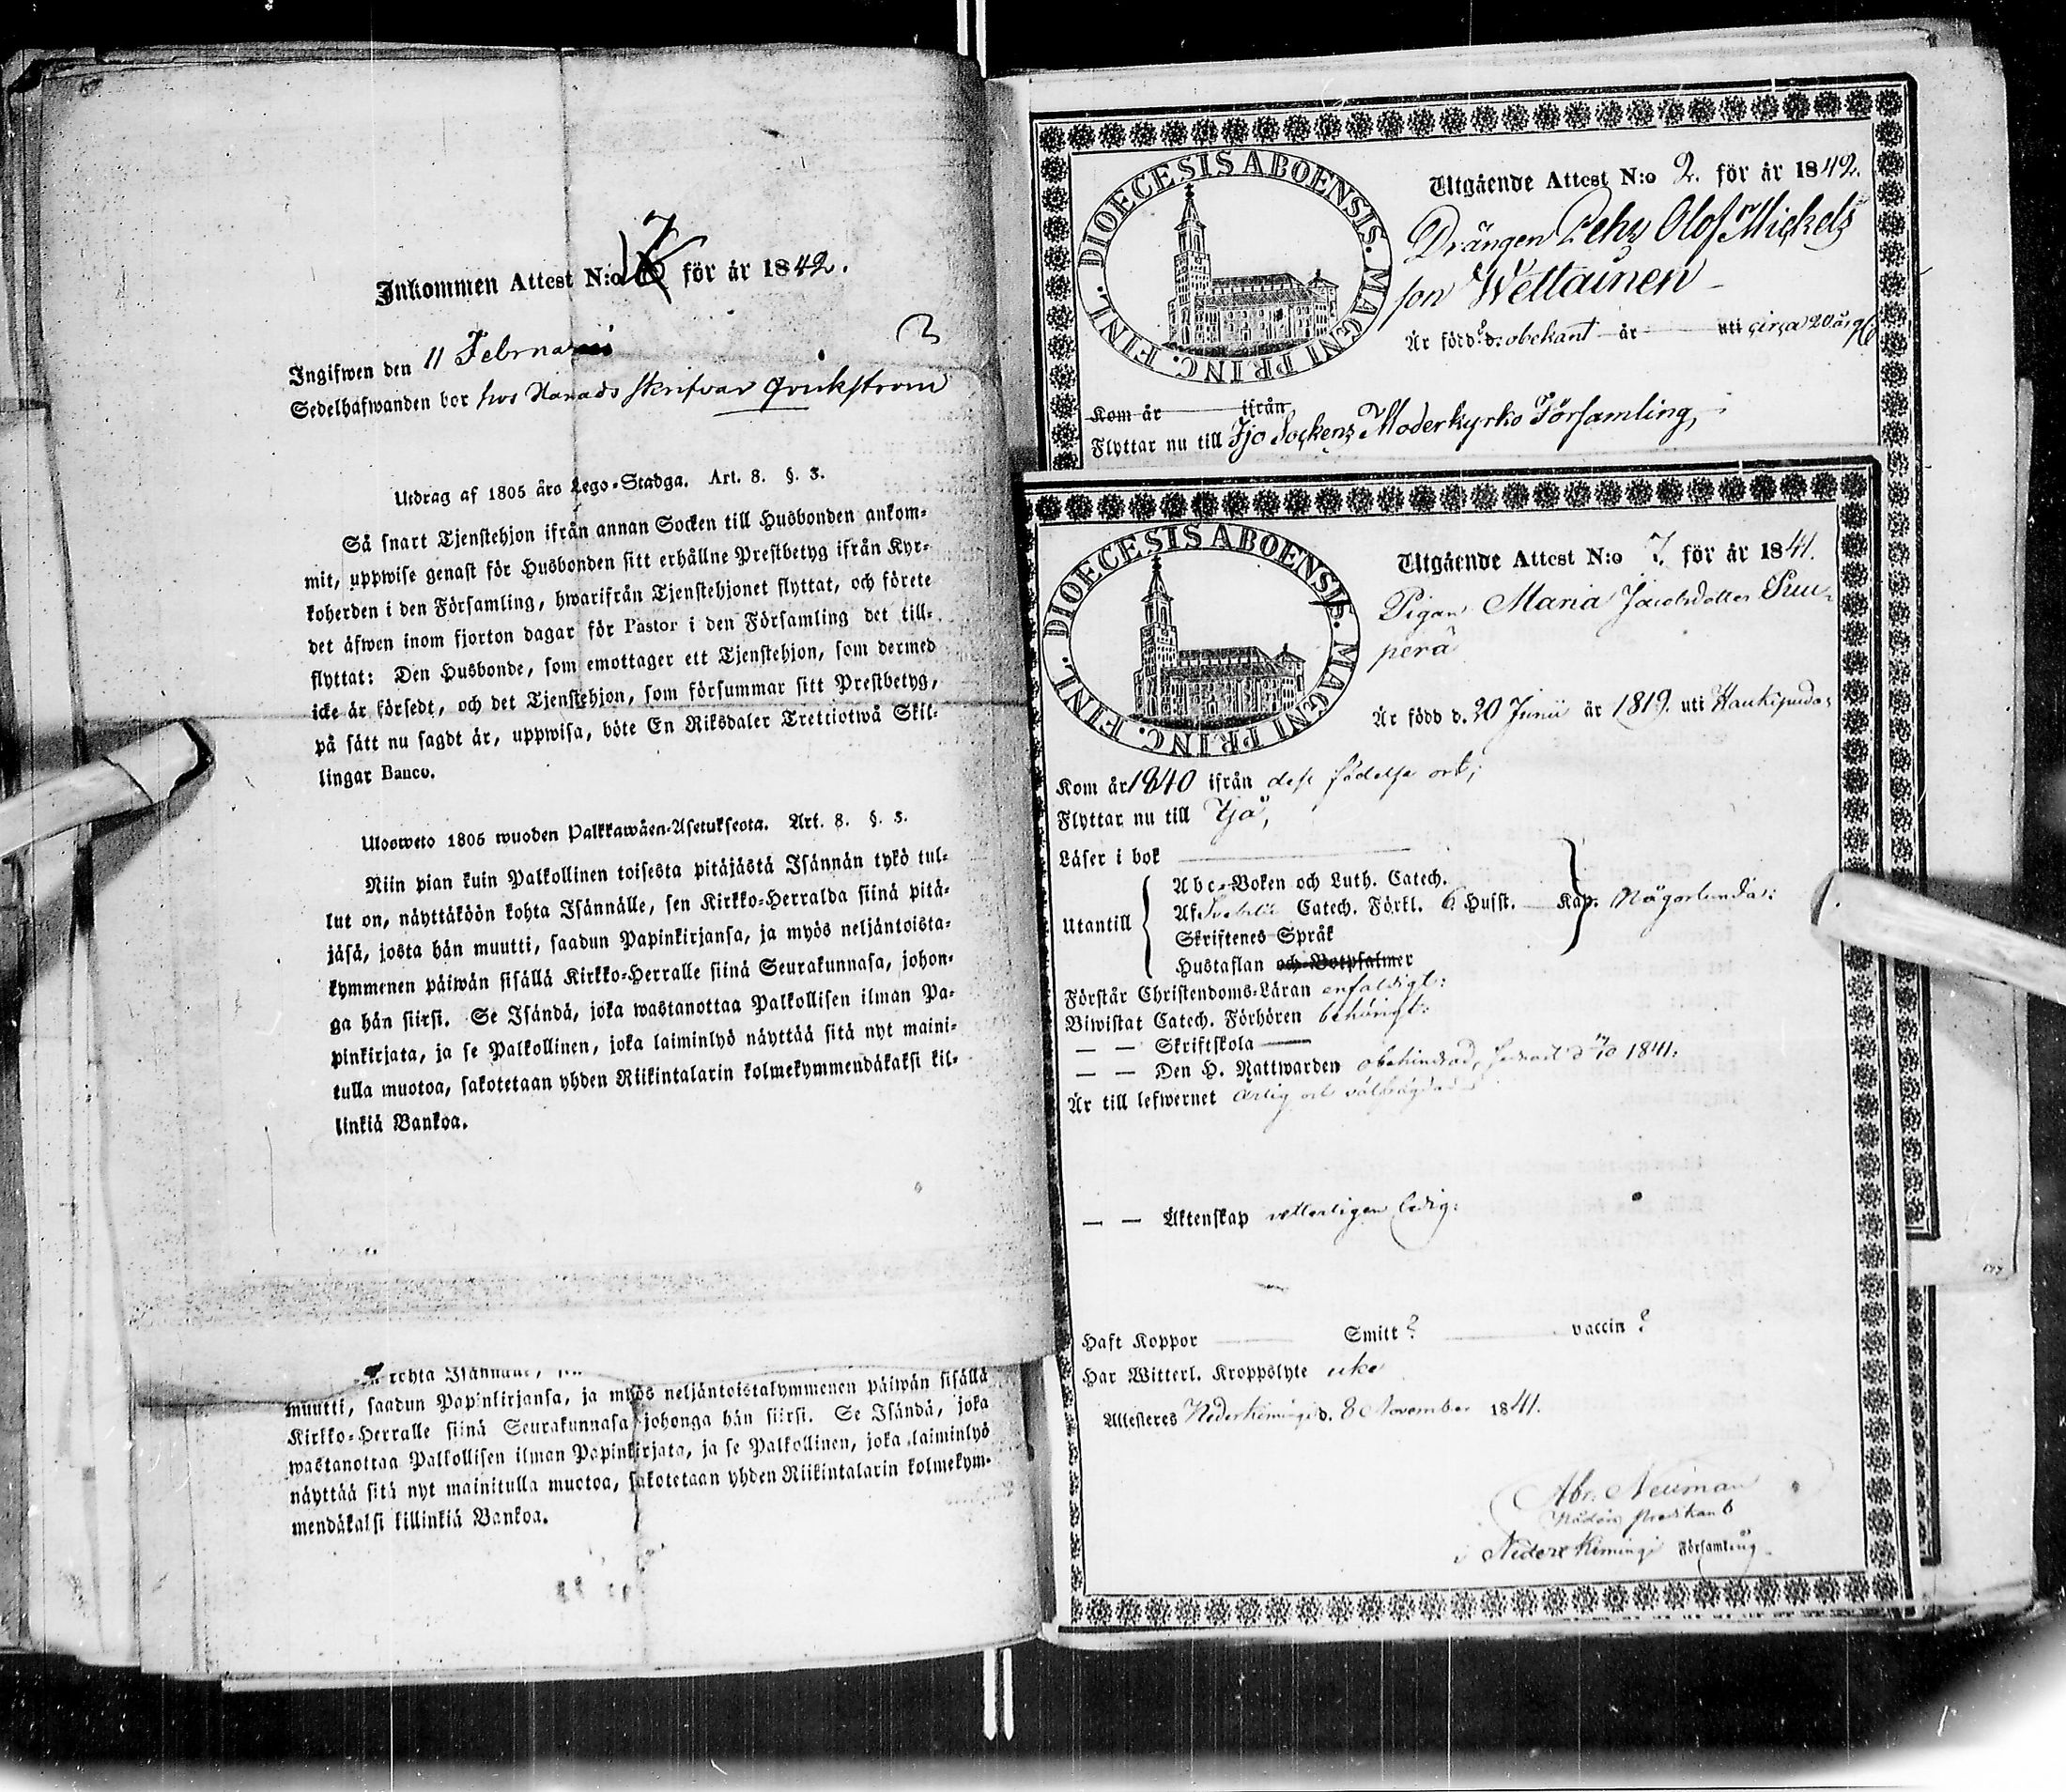 Inkommen Attest N:o 7 för år 1842.
Ingifwen den 11 Februarii
Sedelhafwanden bor hos Härads skrifvar
Utdrag af 1805 års Lego-Stadga. Art. 8. §. 3.
Så snart Tjenstehjon ifrån annan Socken till Husbonden ankom-
mit, uppwise genast för Husbonden sitt erhållne Prestbetyg ifrån Kyr-
koherden i den Församling, hwarifrån Tjenstehjonet flyttat, och förete
det äfwen inom fjorton dagar för Pastor i den Församling det till-
flyttat: Den Husbonde, som emottager ett Tjenstehjon, som dermed
icke är försedt, och det Tjenstehjon, som försummar sitt Prestbetyg,
på sätt nu sagdt är, uppwisa, böte En Riksdaler Trettiotwå Skil-
lingar Banco.
Uloosweto 1805 wuoden Palkkawäen-Asetuksesta. Art. 8. §. 3.
Niin pian kuin Palkollinen toisesta pitäjästä Isännän tykö tul-
lut on, näyttäköön kohta Isännälle, sen Kirkko-Herralda siinä pitä-
jäsä, josta hän muutti, saadun Papinkirjansa, ja myös neljäntoista-
kymmenen päiwän sisällä Kirkko-Herralle siinä Seurakunnasa, johon-
ga hän siirsi. Se Isändä, joka wastanottaa Palkollisen ilman Pa-
pinkirjata, ja se Palkollinen, joka laiminlyö näyttää sitä nyt maini-
tulla muotoa, sakotetaan yhden Riikintalarin kolmekymmendäkaksi kil-
linkiä Bankoa.
kohta Isännälle,
muutti, saadun Papinkirjansa, ja myös neljäntoistakymmenen päiwän sisällä
Kirkko-Herralle siinä Seurakunnasa johonga hän siirsi. Se Isändä, joka
wastanottaa Palkollisen ilman Papinkirjata, ja se Palkollinen, joka laiminlyö
näyttää sitä nyt mainitulla muotoa, sakotetaan yhden Riikintalarin kolmekym-
mendäkaksi killinkiä Bankoa.
DIOECESIS ABOENSIS. MAGNI PRINC. FINL.
Utgående Attest N:o 2. för år 1842.
Drängen Olof Mickels
son Wettainen
Är född d. obekant år uti circa 20 år
Kom år ifrån
Flyttar nu till Ijo Sockens Moderkyrko Församling,
DIOECESIS ABOENSIS. MAGNI PRINC. FINL.
Utgående Attest N:o 7. för år 1841.
Pigan Maria Jacobsdotter Puu-
perä
Är född d. 20 Junii år 1819. uti Haukipudas
Kom år 1840 ifrån dess födelse ort;
Flyttar nu till Ijå,
Läser i bok
Utantill
Abc-Boken och Luth. Catech.
Af Svebilii Catech. Förkl. 6 Hufst. Kap. Någorlunda:
Skriftenes Språk
Hustaflan och Botpsalmer
Förstår Christendoms-Läran enfaldigt:
Biwistat Catech. Förhören behörigt:
— — Skriftskola
— — Den H. Nattwarden obehindrad, 1841.
Är till lefwernet ärlig och
— — Äktenskap vetterligen ledig:
Haft Koppor Smitt? vaccin?
Har Witterl. Kroppslyte icke
Attesteras Neder Kiminge d. 8 November 1841.
Abr. Neuman
i Neder Kiminge Församling